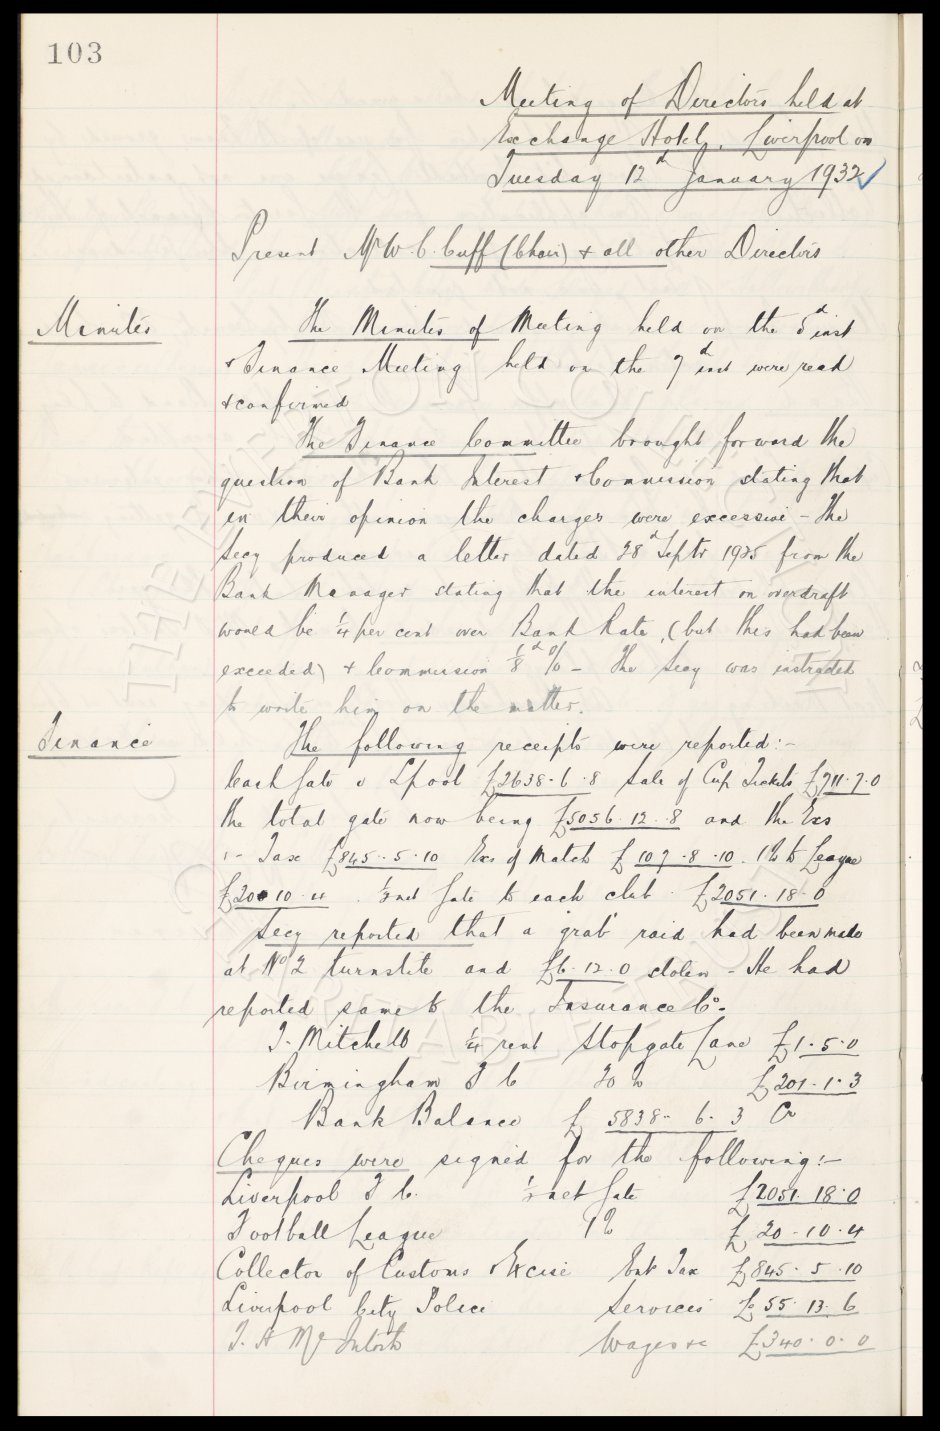 103
Meeting of Directors held at
Exchange Hotel, Liverpool on
Tuesday 12th January 1932
Present Mr W. C. Cuff (Chair) & all other Directors
Minutes
The Minutes of Meeting held on the 5th inst
& Finance Meeting held on the 7th inst were read
& confirmed
The Finance Committee brought forward the
question of Bank Interest & Commission stating that
in their opinion the charges were excessive - The
Secy produced a letter dated 28th Septr 1925 from the
Bank Manager stating that the interest on overdraft
would be ¼ per cent over Bank Rate, (but this had been
exceeded) & Commission ⅛th % - The Secy was instructed
to write him on the matter.
Finance
The following receipts were reported:-
Cash Gate v Lpool £2638-6-8 Sale of Cup Tickets £711.7.0
the total gate now being £5056.12.8 and the Exs
:- Tax £845.5.10 Exs of Match £107.8.10. 1% to League
£20.10.4. ½ net Gate to each club £2051.18.0
Secy reported that a 'grab' raid had been made
at No 2 turnstile and £6.12.0 stolen - He had
reported same to the Insurance Co.
J. Mitchell ¼ rent Stopgate Lane £1.5.0
Birmingham F C £201.1.3
Bank Balance £5838-6.3 Cr
Cheques were signed for the following:-
Liverpool F C. ½ net Gate £2051.18.0
Football League 1% £20-10.4
Collector of Customs & Excise Ent Tax £845.5.10
Liverpool City Police Services £55.13.6
T. H McIntosh Wages &c £340.0.0
THE EVERTON